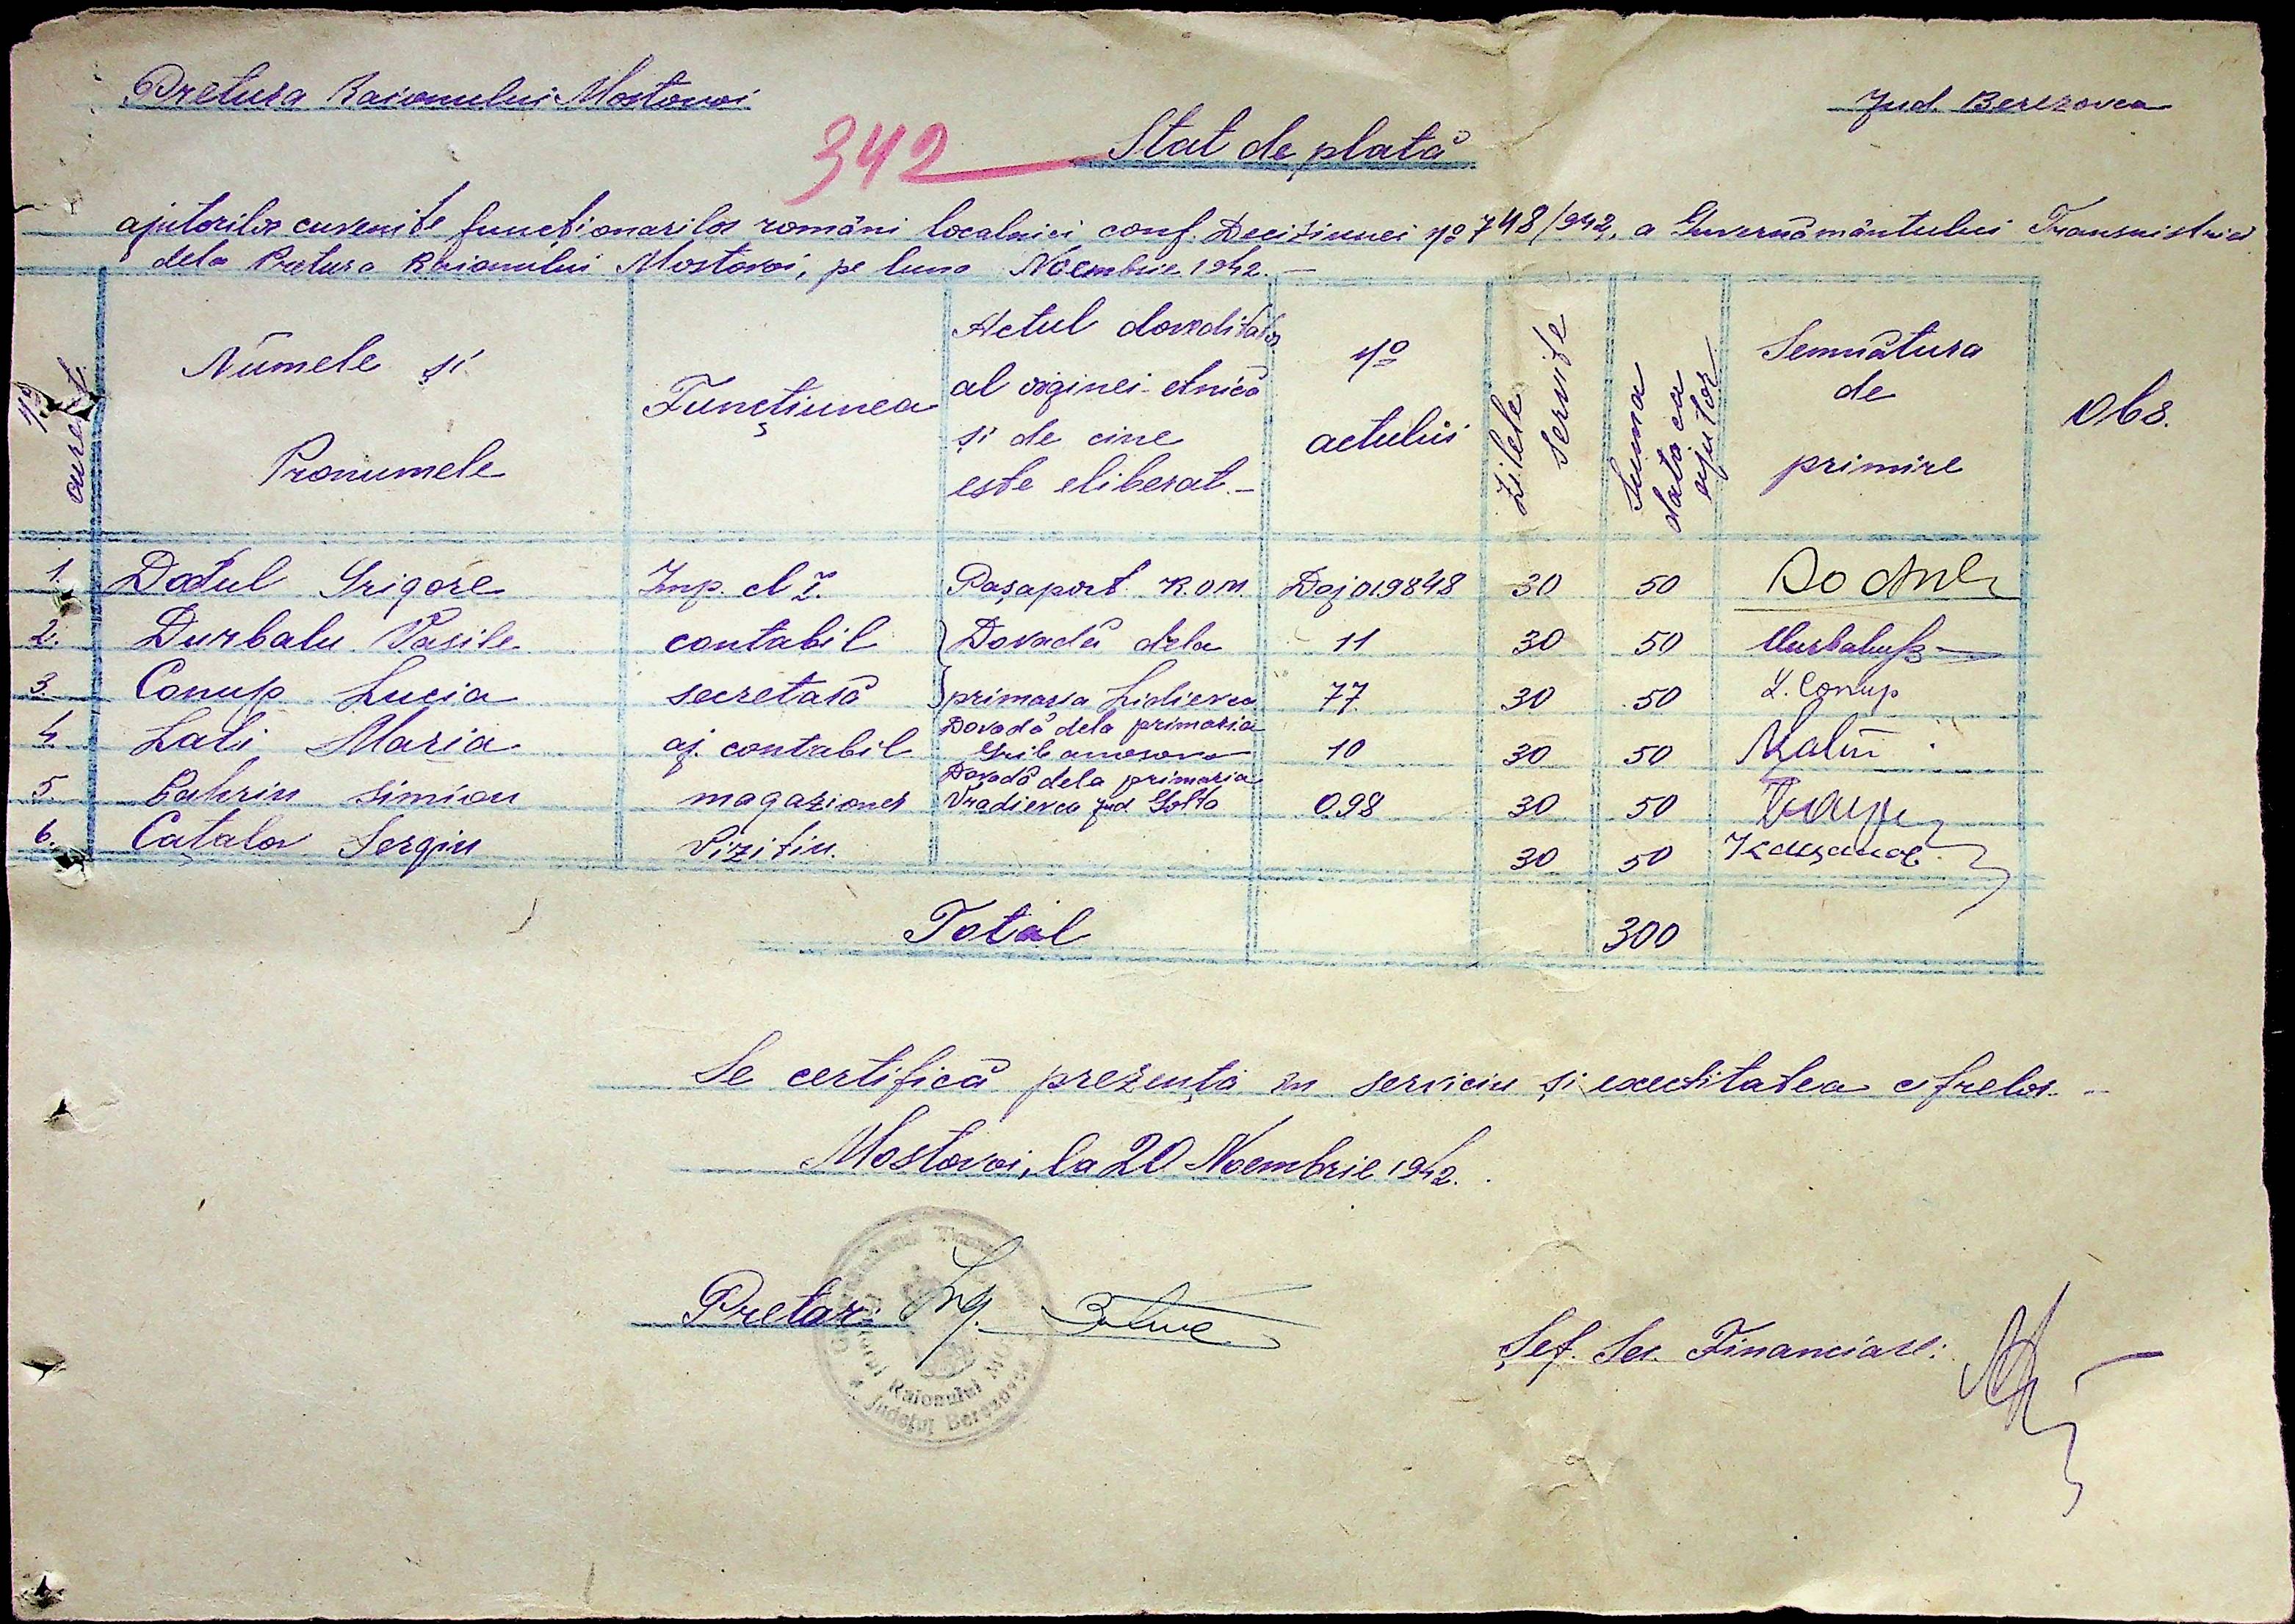 Pretura Raionului Mostovoi
Jud. Berezovca
342
Stat de plată
ajutorilor cuvenite funcționarilor români localnici conf. Deciziunei No 748/942, a Guvernământului Transnistriei
dela Pretura Raionului Mostovoi, pe luna Noembrie 1942.-
No curent. Numele și Pronumele Funcțiunea Actul doveditator al originei etnică și de cine este eliberat.- No actului Zilele servite Suma data ca ajutor Semnătura de primire Obs.
1. Dodul Grigore Imp. cl I. Pașaport R.O.M. Doj 019848 30 50
2. Durbalu Vasile contabil Dovadă dela 11 30 50
3. Conup Lucia secretară primaria Lidievca 77 30 50 L. Conup
4. Lati Maria aj. contabil Dovadă dela primaria 10 30 50
5. Bahrin Simion magazioner Dovadă dela primaria Vradievca jud Golta 098 30 50
6. Cațalov Sergiu Vizitiu. 30 50 Кацалов
Total 300
Se certifică prezența în serviciu și exectitatea cifrelor.-
Mostovoi, la 20 Noembrie 1942.
Pretor: Ing.
Raionului
Județul Berezovca
Șef. Ser. Financiare: